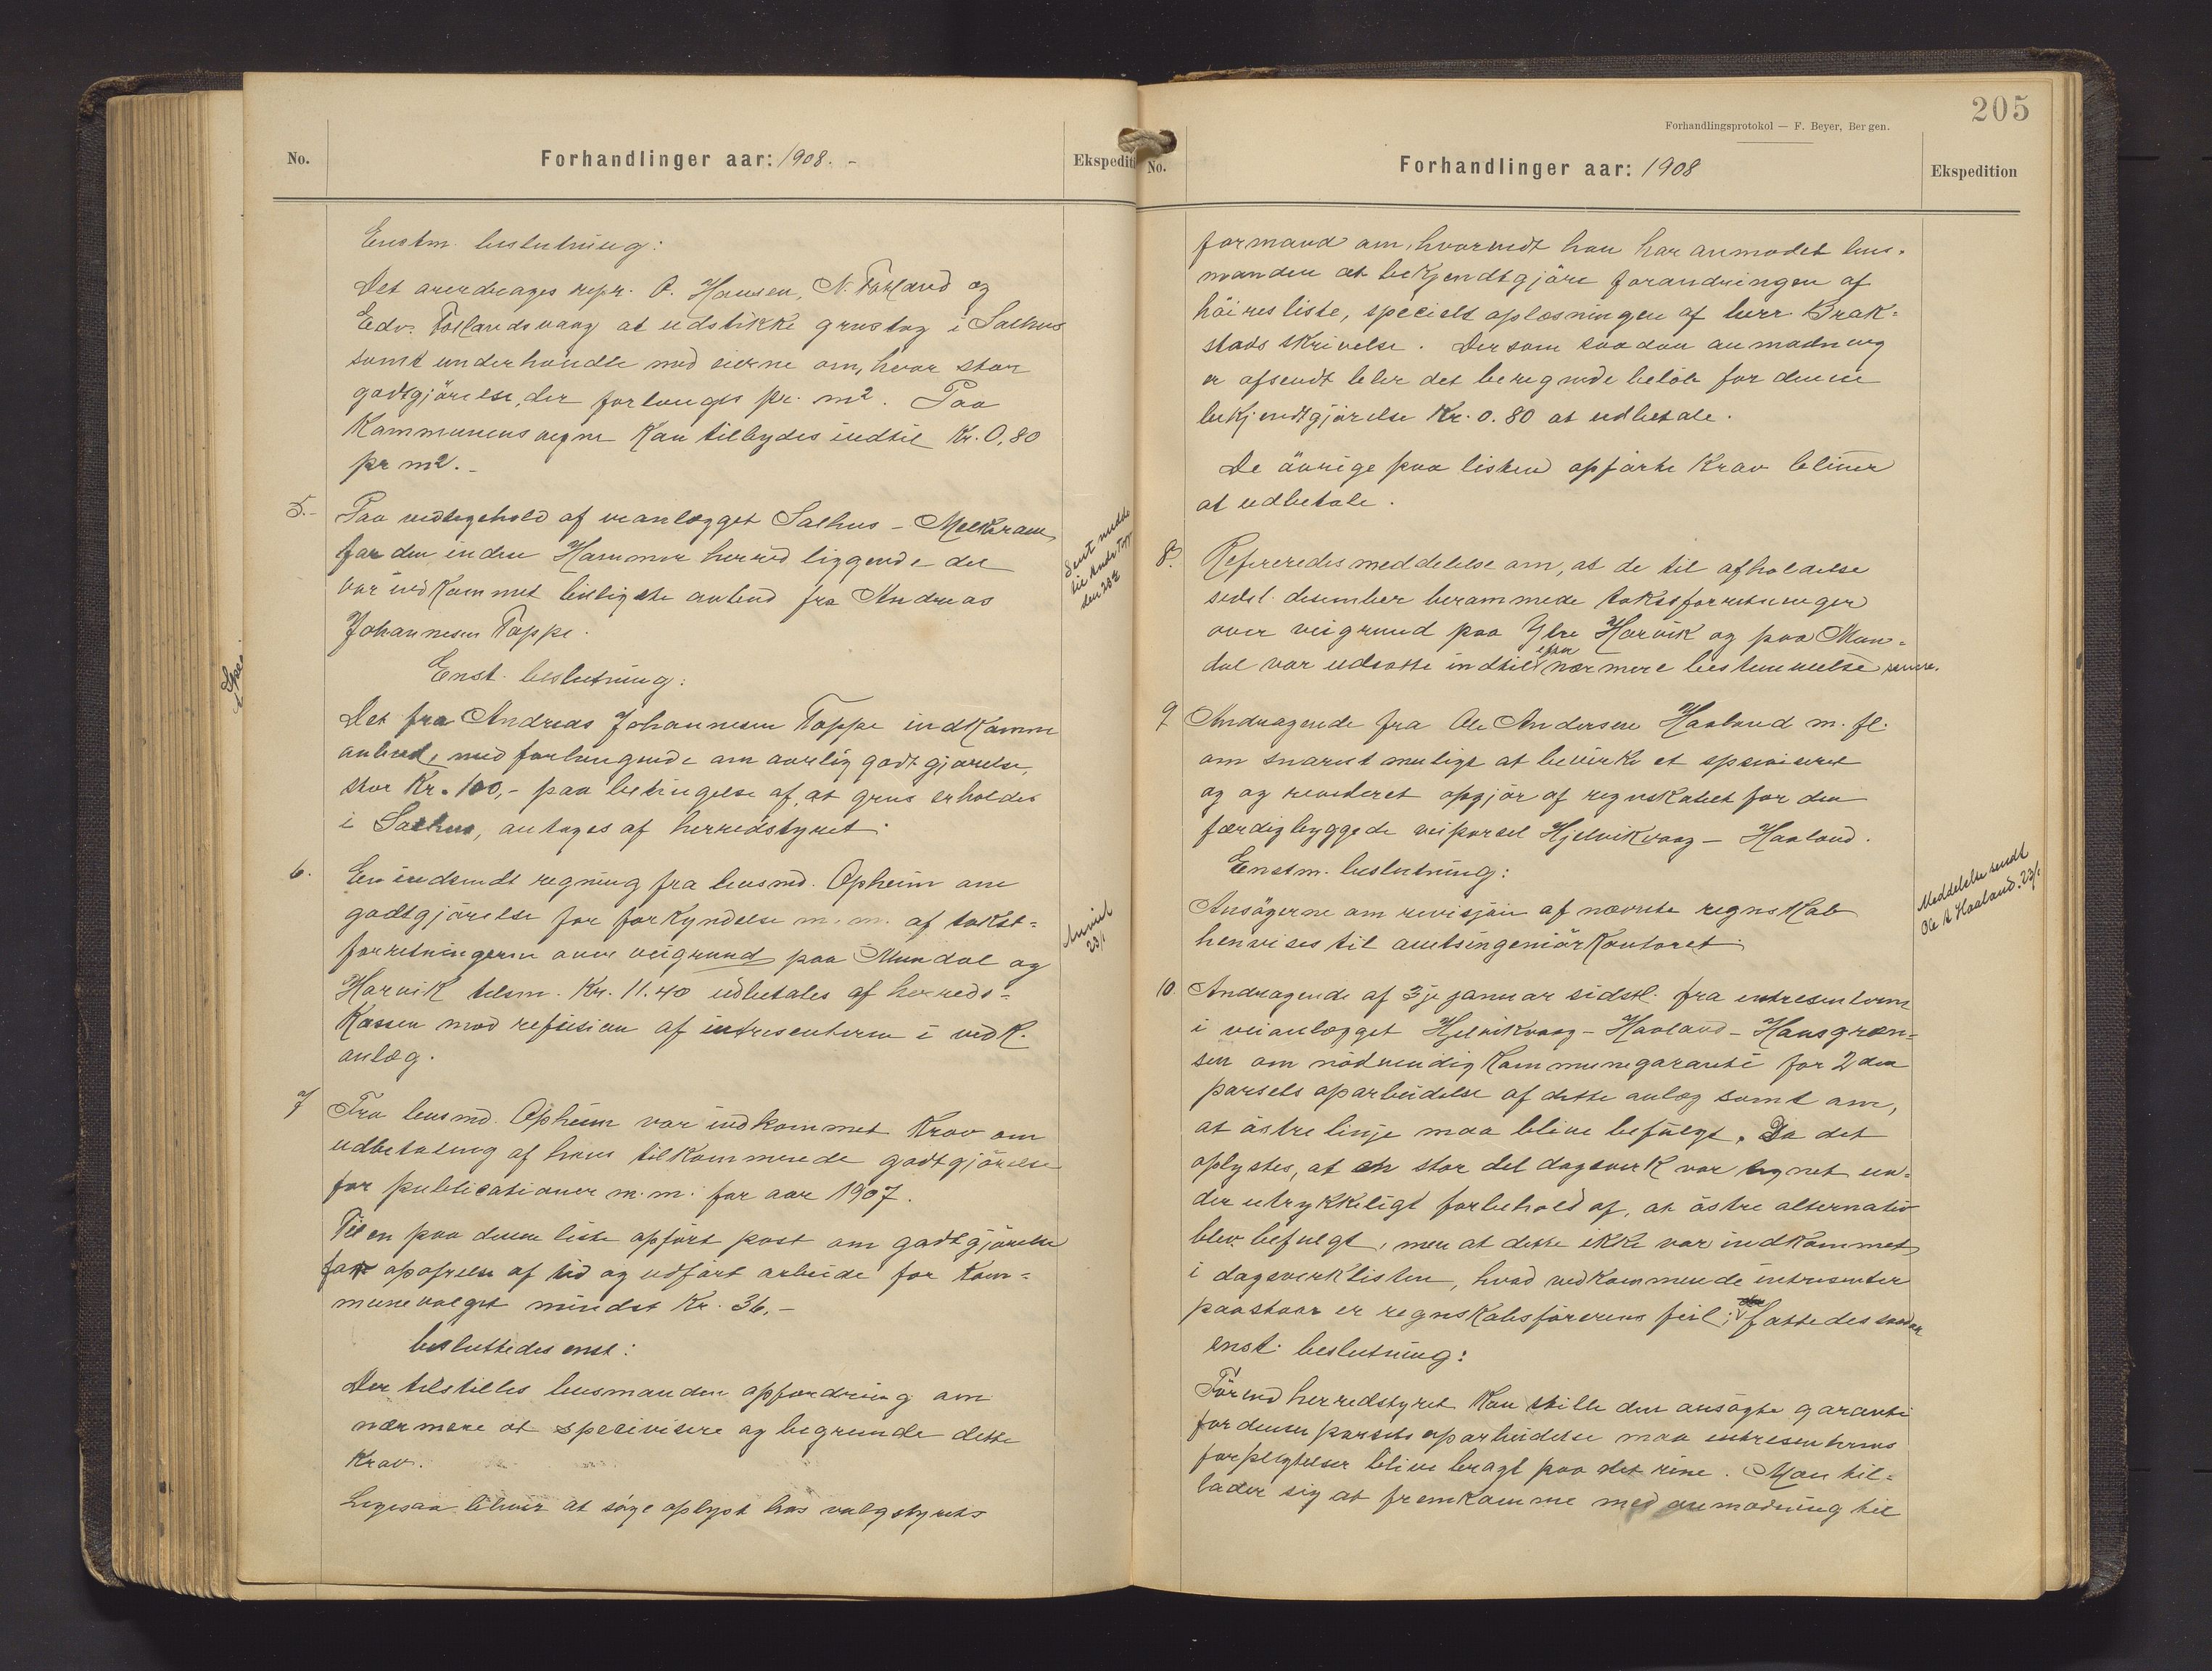 No.
Forhandlinger aar: 1908. -
Enstm. beslutning:
Det overdrages repr. O. Hansen, N. Fosland og
Edv. Toslandsvaag at udstikke grustag i Salhus
samt underhandle med eierne om, hvor stor
godtgjörelse, der forlanges pr. m2. Paa
Kommunens vegne kan tilbydes indtil Kr. 0,80
pr m2. -
5. -
Paa vedligehold af veianlægget Salhus - Melkeraaen
for den inden Hammer herred liggende del
var indkommet billigste anbud fra Andreas
Johannesen Toppe.
Enst. beslutning:
Det fra Andreas Johannesen Toppe indkomne
anbud, med forlangende om aarlig godtgjørelse,
stor Kr. 100,- paa betingelse af, at grus erholdes
i Salhus, antages af herredstyret.
Sent medde
til Andr. Topp
den 28/2
6.
En indsendt regning fra lensmd. Opheim om
godtgjörelse for forkyndelse m. m. af takst-
forretningerne over veigrund paa Mundal og
Harvik tilsm. Kr. 11.40 udbetales af herreds-
kassen mod refusion af intresenterne i vedk.
anlæg.
Anvist
23/1
7
Fra lensmd. Opheim var indkommet Krav om
udbetaling af hans tilkommende godtgjörelse
for publicationer m. m. for aar 1907.
Til en paa denne liste opfört post om godtgjörelse
for opofrelse af tid og udfört arbeide for Kom-
munevalget mindst Kr. 36,-
besluttedes enst:
Der tilstilles lensmanden opfordring om
nærmere at specivisere og begrunde dette
Krav.
Ligesaa bliver at söge oplyst hos valgstyrets
Spei
205
Forhandlingsprotokol — F. Beyer, Bergen.
No.
Forhandlinger aar: 1908
Ekspedition
formand om, hvorvidt han har anmodet lens-
manden at bekjendtgjöre forandringen af
höires liste, specielt oplæsningen af herr Brak-
stads skrivelse. Dersom saadan anmodning
er afsendt bliver det beregnede belöb for denne
bekjendtgjørelse Kr. 0.80 at udbetale.
De övrige paa listen opförte Krav bliver
at udbetale.
8.
Refereredes meddelelse om, at de til afholdelse
sidstl. desember berammede takstforretninger
over veigrund paa Ytre Harvik og paa Mun-
dal var udsatte indtil efter nærmere bestemmelse senere.
9
Andragende fra Ole Andersen Haaland m. fl.
om snarest muligt at bevirke et speciviseret
og og revideret opgjör af regnskabet for den
færdigbyggede veiparsel Hjelvikvaag - Haaland.
Enstm. beslutning:
Ansögerne om revisjön af nævnte regnskab
henvises til amtsingeniörkontoret.
Meddelelse sendt
Ole A Haaland. 23/1
10.
Andragende af 3je januar sidstl. fra intresenterne
i veianlægget Hjelvikvaag - Haaland - Hausgræn-
sen om nödvendig Kommunegaranti for 2den
parsels oparbeidelse af dette anlæg samt om,
at östre linje maa blive befulgt. Da det
oplystes, at en stor del dagsverk var tegnet un-
der utrykkeligt forbehold af, at östre alternativ
blev befulgt, men at dette ikke var indkommet
i dagsverklisten, hvad vedkommende intresenter
paastaar er regnskabsförerens feil; fattedes saadan
enst. beslutning:
Förend herredstyret kan stille den ansögte garanti
for denne parsels oparbeidelse maa intresenternes
forpligtelser blive bragt paa det rene. Man til-
lader sig at fremkomme med anmodning til